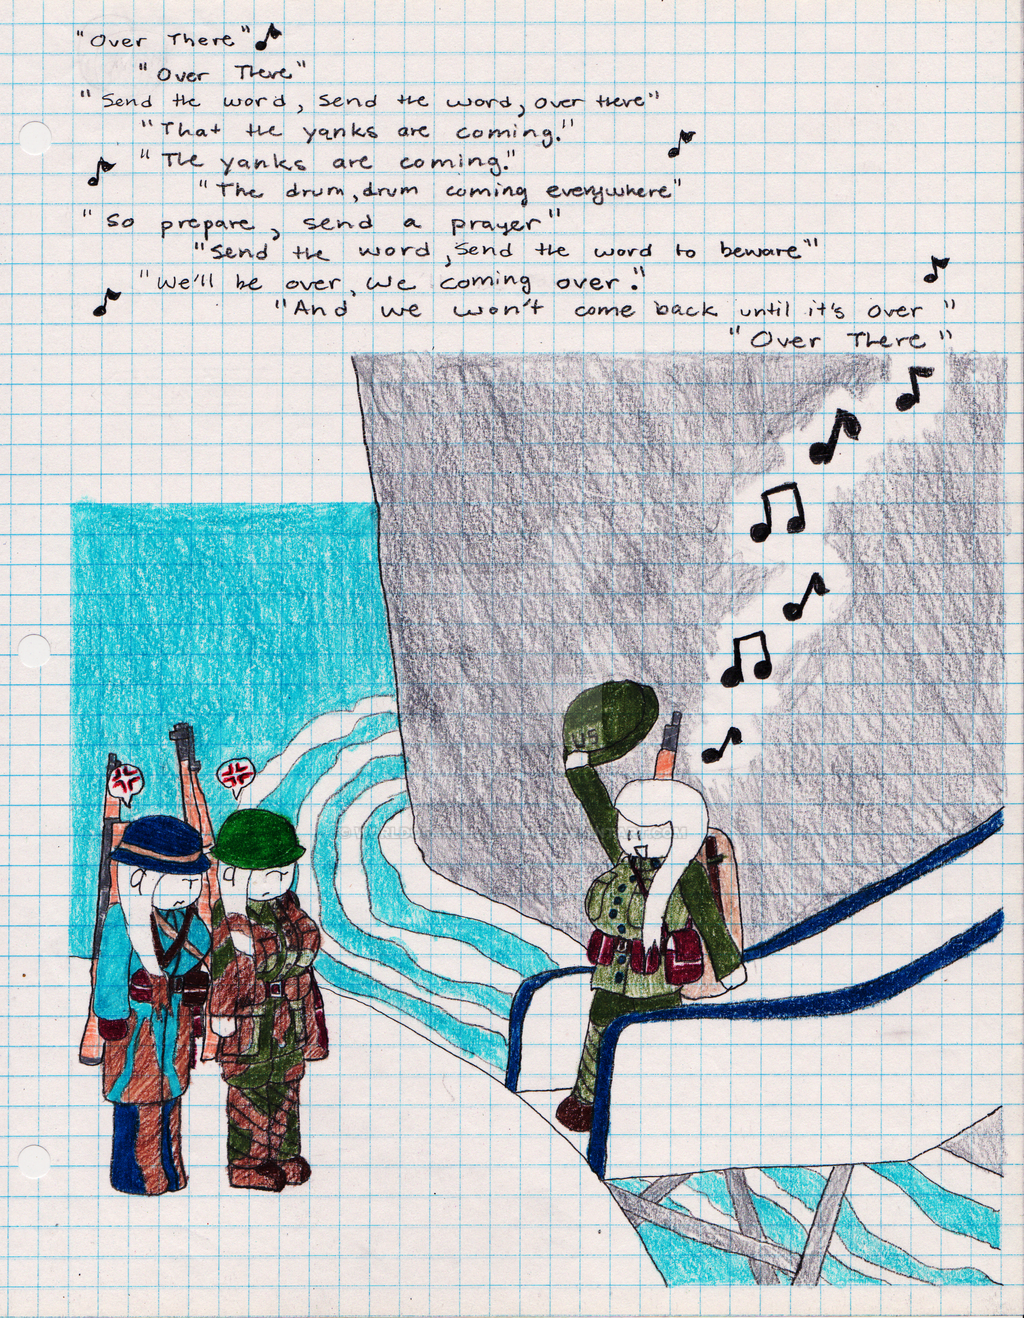 "Over There"
"Over There"
"Send the word, send the word, over there"
"That the yanks are coming."
"The yanks are coming."
"The drum, drum coming everywhere"
"So prepare, send a prayer"
"Send the word, send the word to beware"
"We'll be over, we coming over."
"And we won't come back until it's over"
"Over There"
US